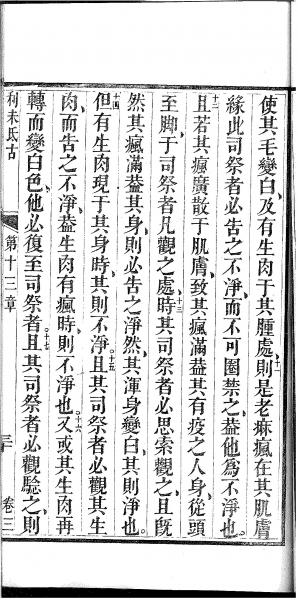 使其毛變白、及有生肉于其腫處、十一則是老痳瘋在其肌膚
緣此司祭者必告之不淨、而不可圈禁之、葢他為不淨也。
十二且若其瘋廣散于肌膚、致其瘋滿葢其有疫之人身、從頭
至脚、于司祭者凡觀之處、十三時其司祭者必思索觀之、且旣
然其瘋滿葢其身、則必告之淨、然其渾身變白、其則淨也。
十四但有生肉現于其身時、其則不淨、十五且其司祭者必觀其生
肉、而告之不淨、葢生肉有瘋時、則不淨也、十六又或其生肉再
轉而變白色、他必復至司祭者、十七且其司祭者必觀騐之、則
利未氏古
第十三章
三
卷三